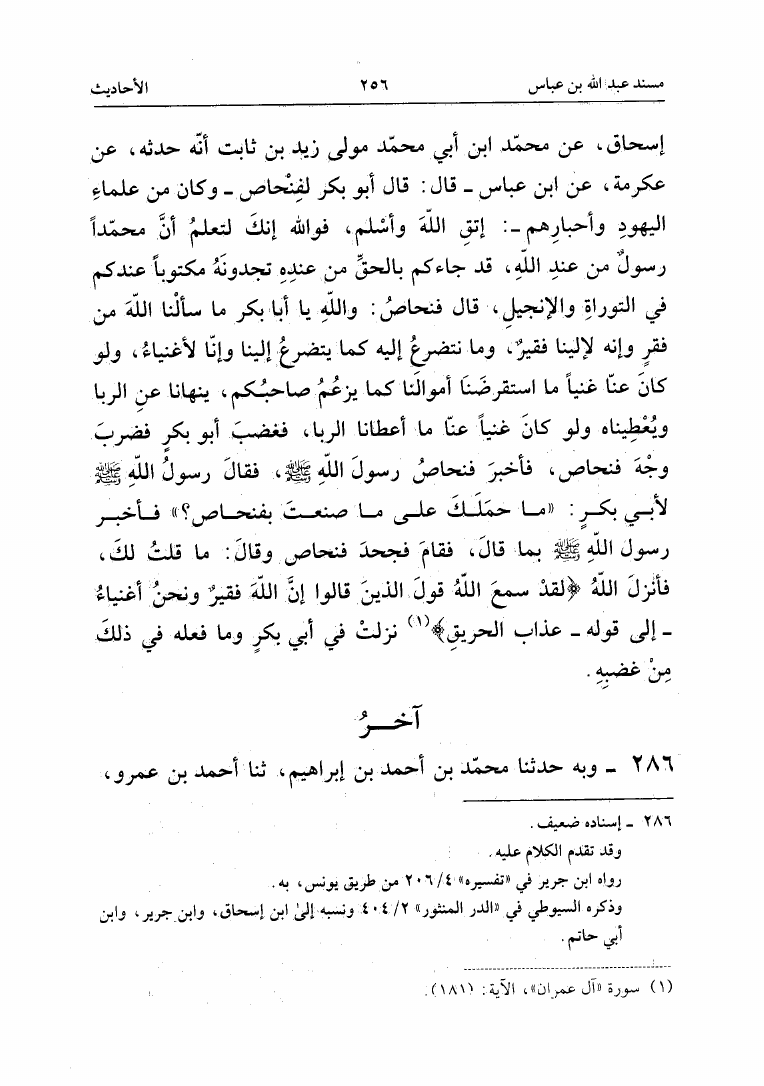 مسند عبد الله بن عباس ٢٥٦ الأحاديث
إسحاق، عن محمّد ابن أبي محمّد مولى زيد بن ثابت أنّه حدثه، عن
عكرمة، عن ابن عباس - قال: قال أبو بكر لفِنْحاص - وكان من علماءِ
اليهودِ وأحبارِهم -: إتقِ اللّهَ وأسْلم، فوالله إنكَ لتعلمُ أنَّ محمّداً
رسولٌ من عندِ اللّهِ، قد جاءكم بالحقِّ من عندِهِ تجدونَهُ مكتوباً عندكم
في التوراةِ والإنجيلِ، قال فنحاصُ: واللّهِ يا أبا بكر ما سألْنا اللّهَ من
فقرٍ وإنه لإلينا فقيرٌ، وما نتضرعُ إليه كما يتضرعُ إلينا وإنّا لأغنياءُ، ولو
كانَ عنّا غنياً ما استقرضَنَا أموالَنا كما يزعُمُ صاحبُكم، ينهانا عنِ الربا
ويُعْطِيناه ولو كانَ غنياً عنّا ما أعطانا الربا، فغضبَ أبو بكرٍ فضربَ
وجْهَ فنحاص، فأخبرَ فنحاصُ رسولَ اللّهِ ﷺ، فقالَ رسولُ اللّهِ ﷺ
لأبي بكرٍ: «ما حمَلَكَ على ما صنعتَ بفنحاص؟» فأخبر
رسول اللّهِ ﷺ بما قالَ، فقامَ فجحدَ فنحاص وقالَ: ما قلتُ لكَ،
فأنزلَ اللّهُ ﴿لقدْ سمعَ اللّهُ قولَ الذينَ قالوا إنَّ اللّهَ فقيرٌ ونحنُ أغنياءُ
- إلى قوله - عذاب الحريقِ﴾(١) نزلتْ في أبي بكرٍ وما فعله في ذلكَ
مِنْ غضبِهِ.
آخـرُ
٢٨٦ - وبه حدثنا محمّد بن أحمد بن إبراهيم، ثنا أحمد بن عمرو،
٢٨٦ - إسناده ضعيف.
وقد تقدم الكلام عليه.
رواه ابن جرير في «تفسيره» ٢٠٦/٤ من طريق يونس، به.
وذكره السيوطي في «الدر المنثور» ٤٠٤/٢ ونسبه إلىٰ ابن إسحاق، وابن جرير، وابن
أبي حاتم.
(١) سورة «آل عمران»، الآية: (١٨١).